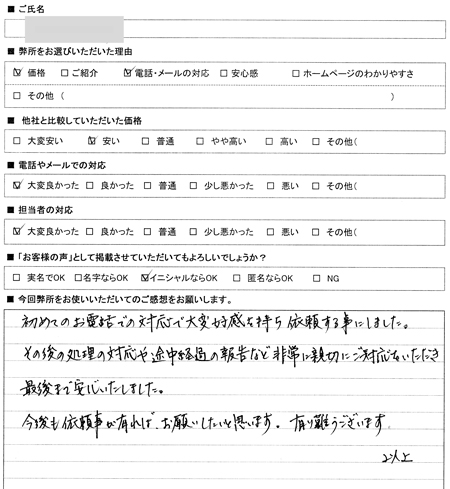 ■ ご氏名
■ 弊所をお選びいただいた理由
☑ 価格 □ ご紹介 ☑ 電話・メールの対応 □ 安心感 □ ホームページのわかりやすさ
□ その他 ( )
■ 他社と比較していただいた価格
□ 大変安い ☑ 安い □ 普通 □ やや高い □ 高い □ その他(
■ 電話やメールでの対応
☑ 大変良かった □ 良かった □ 普通 □ 少し悪かった □ 悪い □ その他(
■ 担当者の対応
☑ 大変良かった □ 良かった □ 普通 □ 少し悪かった □ 悪い □ その他(
■ 「お客様の声」として掲載させていただいてもよろしいでしょうか?
□ 実名でOK □ 名字ならOK ☑ イニシャルならOK □ 匿名ならOK □ NG
■ 今回弊所をお使いいただいてのご感想をお願いします。
初めてのお電話での対応で大変好感を持ち依頼する事にしました。
その後の処理の対応や途中経過の報告など非常に親切にご対応いただき
最後まで安心いたしました。
今後も依頼事が有れば、お願いしたいと思います。有り難うございます
以上